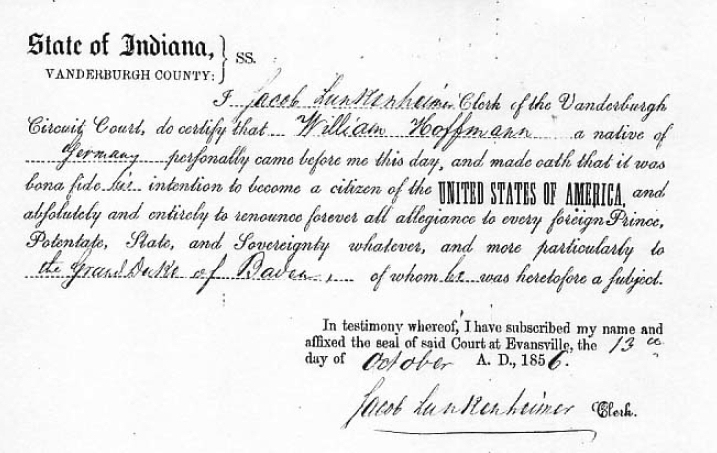 State of Indiana, } SS.
VANDERBURGH COUNTY:
I Jacob Lunkenheimer Clerk of the Vanderburgh
Circuit Court, do certify that William Hoffmann a native of
Germany personally came before me this day, and made oath that it was
bona fide his intention to become a citizen of the UNITED STATES OF AMERICA, and
absolutely and entirely to renounce forever all allegiance to every foreign Prince,
Potentate, State, and Sovereignty whatever, and more particularly to
the Grand Duke of Baden, of whom he was heretofore a subject.
In testimony whereof, I have subscribed my name and
affixed the seal of said Court at Evansville, the 13
day of October A. D., 1856.
Jacob Lunkenheimer Clerk.